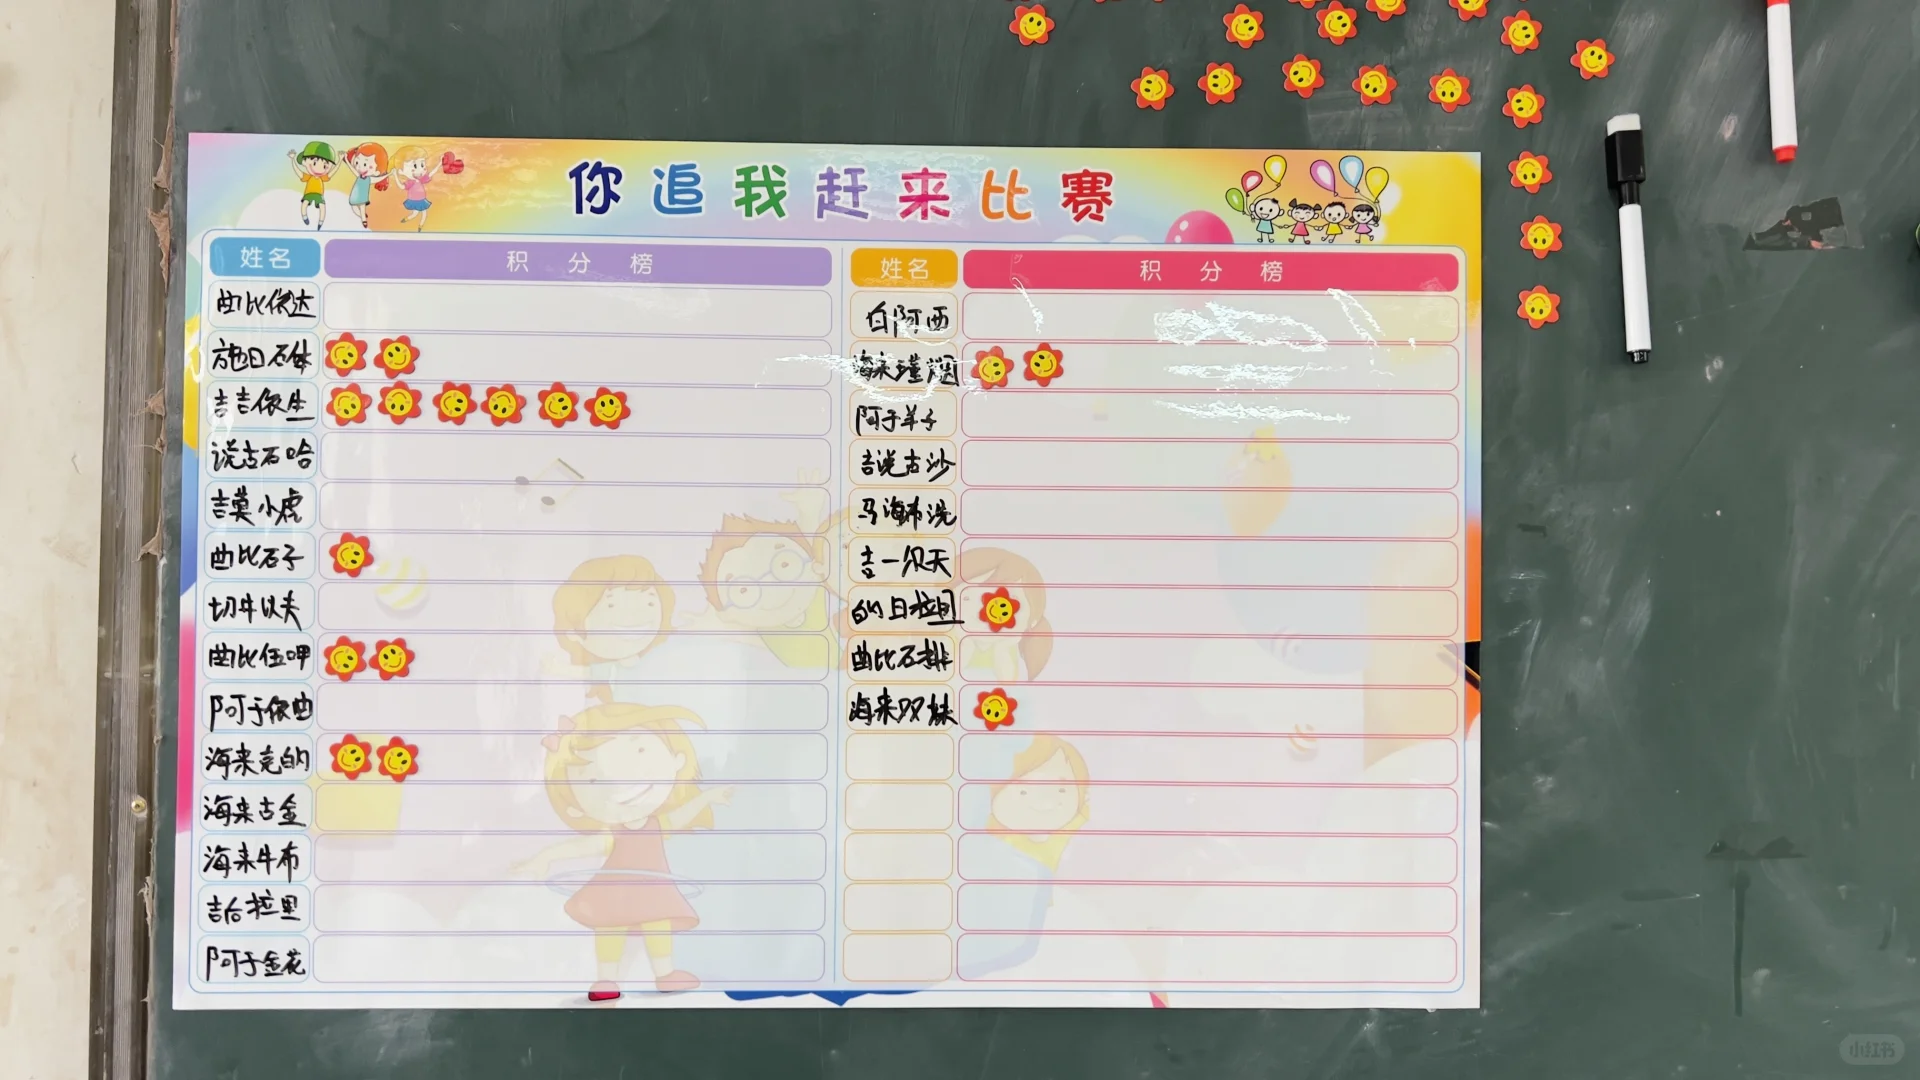 你追我赶来比赛
姓名 积分榜
曲比依达
施日石体
吉吉依生
说古石哈
吉莫小虎
曲比石子
切牛以夫
曲比伍呷
阿于依曲
海来克的
海来古金
海来牛布
吉后拉里
阿于金花
姓名 积分榜
白阿西
海来瑾
阿于羊子
吉说古沙
马海布洗
吉一尔天
的日拉
曲比石排
海来双妹
小红书